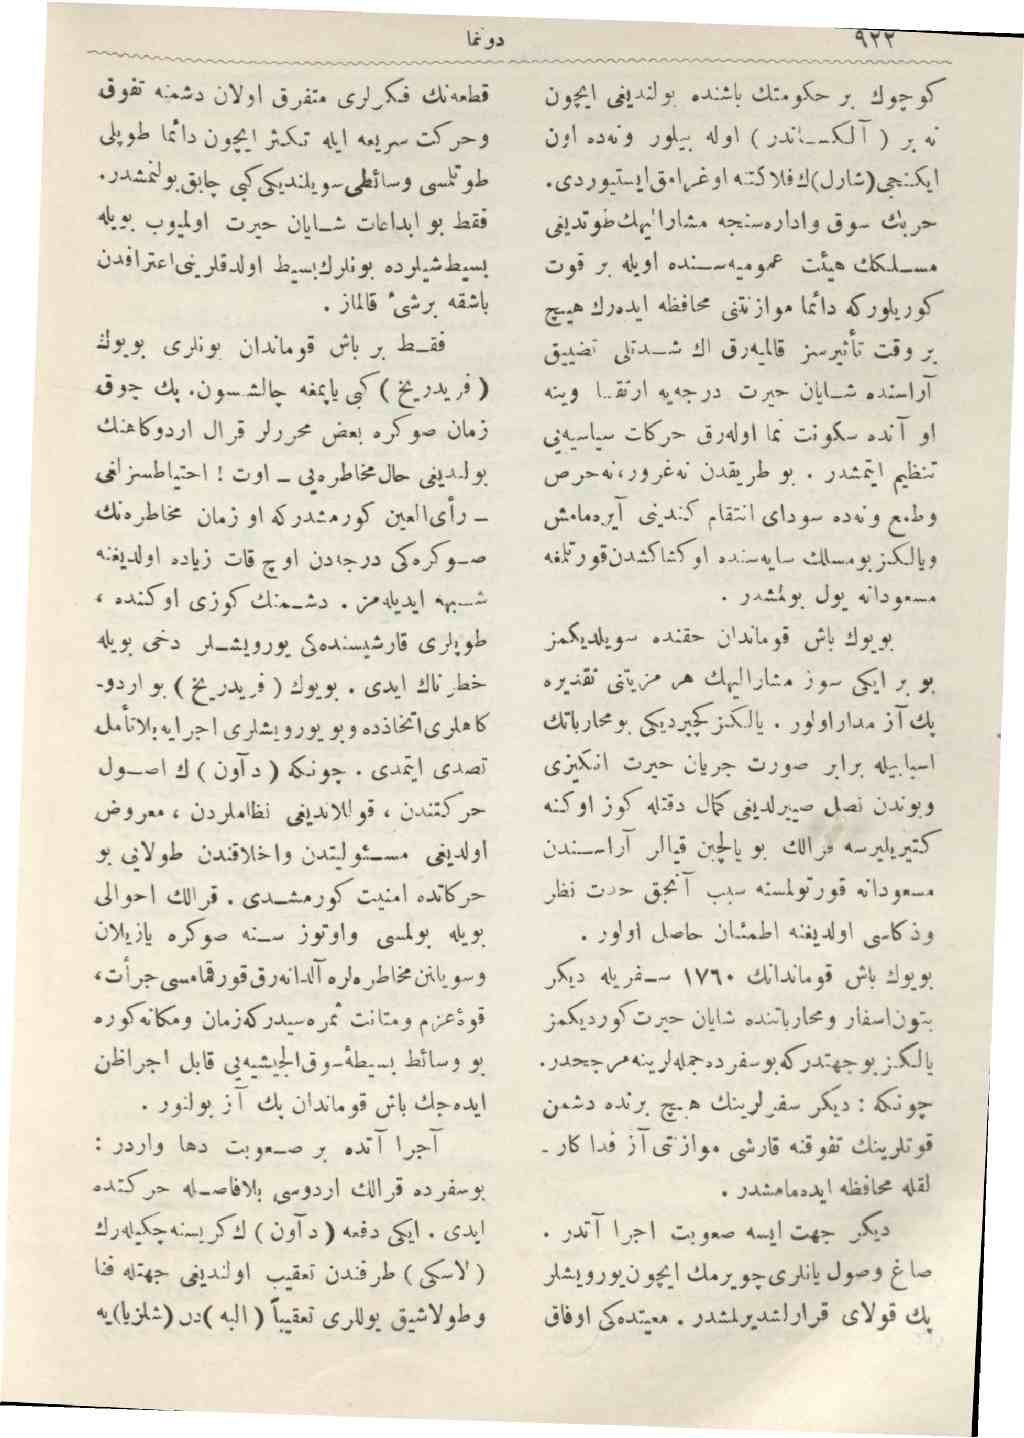 ٩٢٢
دونما
كوچوك بر حكومتك باشنده بولنديغى ايچون
نه بر ( آلكساندر ) اوله بيلور ونه‌ده اون
ايكنجى (شارل)ك فلاكتنه اوغرامق ايستيوردى.
حربك سوق واداره‌سنجه مشاراليهك طوتديغى
مسلكك هيئت عموميه‌سنده اويله بر قوت
كوريلوركه دائما موازنتنى محافظه ايده‌رك هيچ
بر وقت تأثيرسز قالميه‌رق اك شدتلى تضييق
آراسنده شايان حيرت درجه‌يه ارتقا وينه
او آنده سكونت نما اوله‌رق حركات سياسيه‌يى
تنظيم ايتمشدر . بو طريقدن نه‌غرور،نه‌حرص
وطمع ونه‌ده سوداى انتقام كندينى آيره‌مامش
ويالكز بومسلك سايه‌سنده اوكشاكشدن قورتلمغه
مسعودانه يول بولمشدر .
بويوك باش قوماندان حقنده سويلديكمز
بو بر ايكى سوز مشاراليهك هر مزيتنى تقديره
پك آز مدار اولور . يالكز كچيرديكى بومحارباتك
اسبابيله برابر صورت جريان حيرت انكيزى
وبوندن نصل صييرلديغى كمال دقتله كوز اوكنه
كتيريليرسه قرالك بو يالچين قيالر آراسندن
مسعودانه قورتولمسنه سبب آنجق حدت نظر
وذكاسى اولديغنه اطمئنان حاصل اولور .
بويوك باش قوماندانك ١٧٦٠ سفريله ديكر
بتون اسفار ومحارباتنده شايان حيرت كورديكمز
يالكز بوجهتدركه بوسفرده جمله‌لرينه مرجحدر.
چونكه : ديكر سفرلرينك هيچ برنده دشمن
قوتلرينك تفوقنه قارشى موازنتى آز فداكار ـ
لقله محافظه ايده‌مامشدر .
ديكر جهت ايسه صعوبت اجرا آتدر .
صاغ وصول يانلرى چويرمك ايچون يورويشلر
پك قولاى قرارلشديرلمشدر . معيتده‌كى اوفاق
قطعه‌نك فكرلرى متفرق اولان دشمنه تفوق
وحركت سريعه ايله تكثر ايچون دائما طوپلى
طوتلمسى وسائطى سويلنديكى كبى چابق بولنمشدر.
فقط بو ابداعات شايان حيرت اولميوب بويله
بسيط شيلرده بونلرك بسيط اولدقلرينى اعترافدن
باشقه برشئ قالماز .
فقط بر باش قوماندان بونلرى بويوك
( فريدريخ ) كبى ياپمغه چالشسون. پك چوق
زمان صوكره بعض محررلر قرال اردوكاهنك
بولنديغى حال مخاطره‌يى ـ اوت ! احتياطسزلغى
ـ رأى العين كورمشدركه او زمان مخاطره‌نك
صوكره‌كى درجه‌دن اوچ قات زياده اولديغنه
شبهه ايديله‌مز . دشمنك كوزى اوكنده ،
طوپلرى قارشيسنده‌كى يورويشلر دخى بويله
خطرناك ايدى . بويوك ( فريدريخ ) بو اردو-
كاهلرى اتخاذده وبو يورويشلرى اجرايه بلاتأمل
تصدى ايتمدى . چونكه ( دآون ) ك اصول
حركتندن ، قوللانديغى نظاملردن ، معروض
اولديغى مسئوليتدن واخلاقندن طولايى بو
حركاتده امنيت كورمشدى . قرالك احوالى
بويله بولمسى واوتوز سنه صوكره يازيلان
وسويلنن مخاطره‌لره آلدانه‌رق قورقمامسى جرأت،
قوۀ عزم ومتانت ثمره‌سيدركه زمان ومكانه كوره
بو وسائط بسيطۀ سوق الجيشيه‌يى قابل اجرا ظن
ايده‌جك باش قوماندان پك آز بولنور .
آجرا آتده بر صعوبت دها واردر :
بوسفرده قرالك اردوسى بلافاصله حركتده
ايدى . ايكى دفعه ( دآون ) ك كريسنه چكيله‌رك
( لاسكى ) طرفندن تعقيب اولنديغى جهتله فنا
وطولاشيق يوللرى تعقيباً ( البه )دن (شلزيا)يه